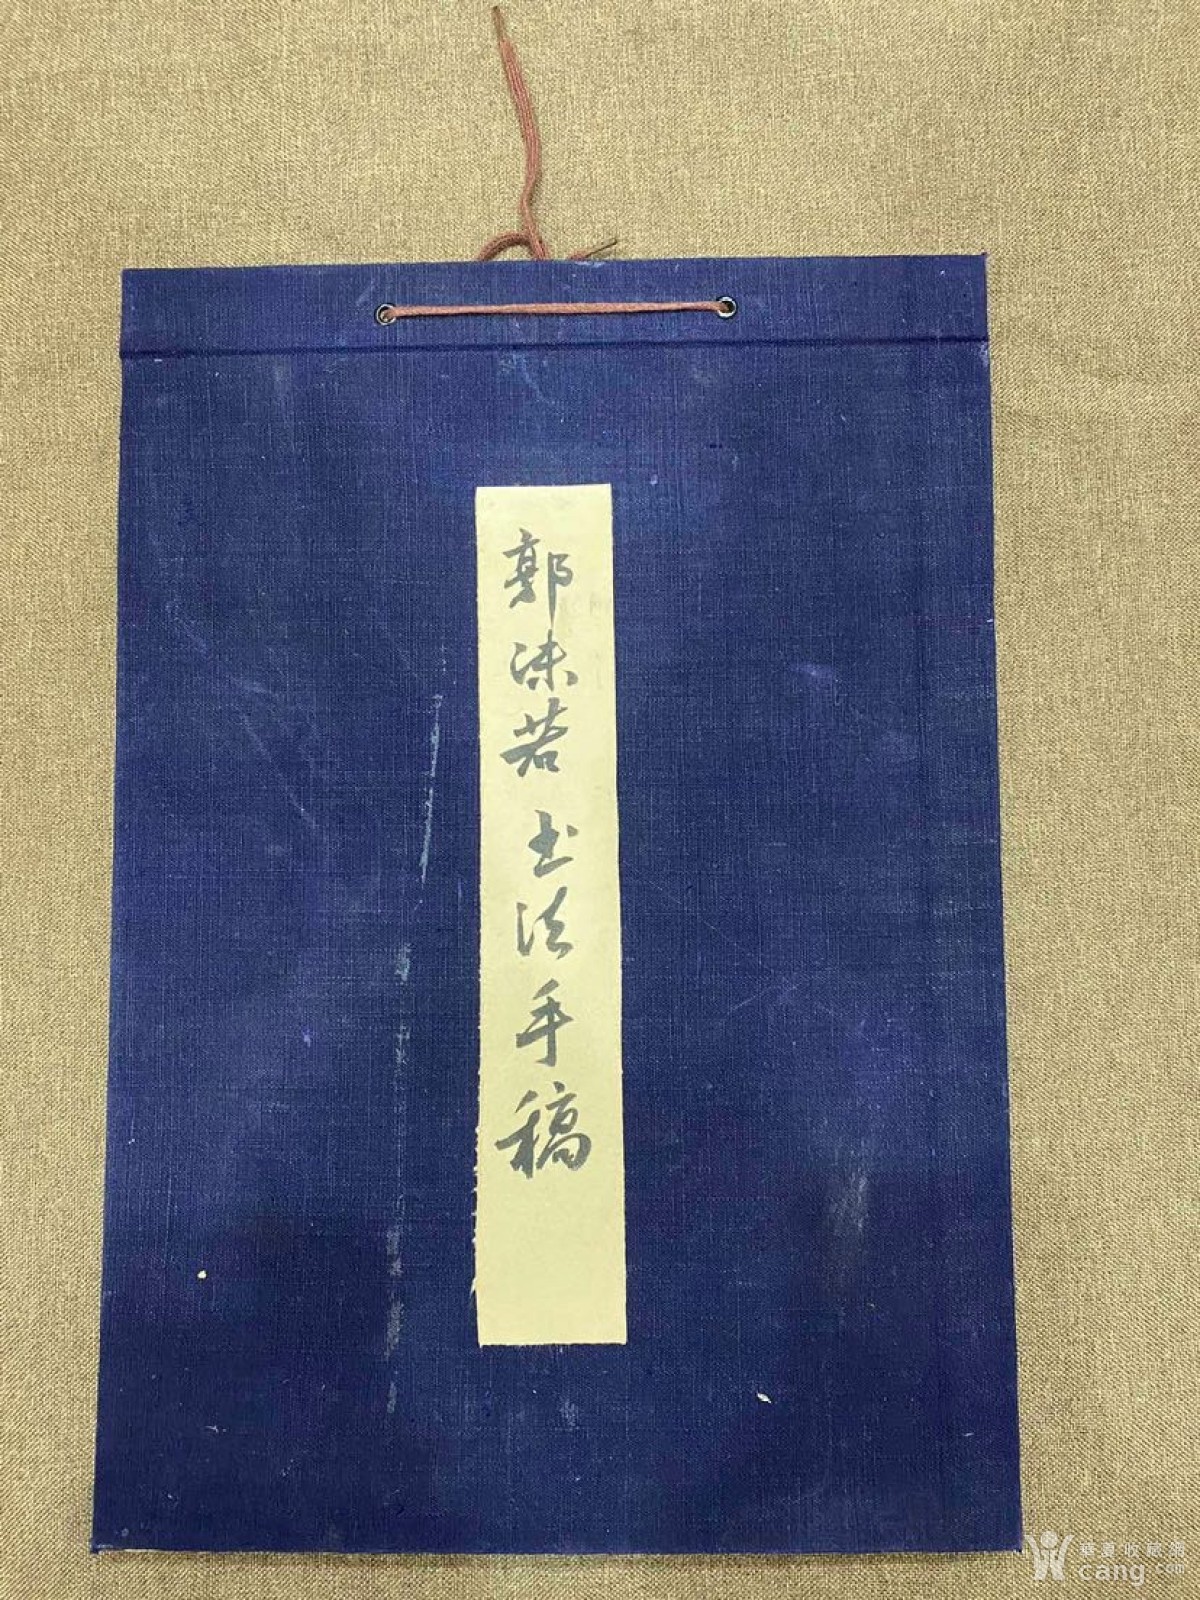 郭沫若书法手稿
华夏收藏网
cang.com